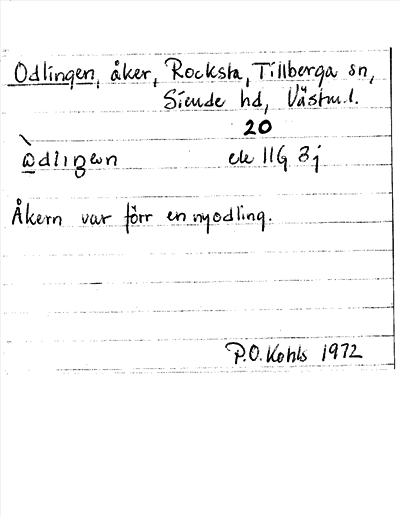 Odlingen, åker, Rocksta, Tillberga sn,
Siende hd, Västm.l.
20
ek 11G 3j
Åkern var förr en nyodling.
P.O. Kohls 1972